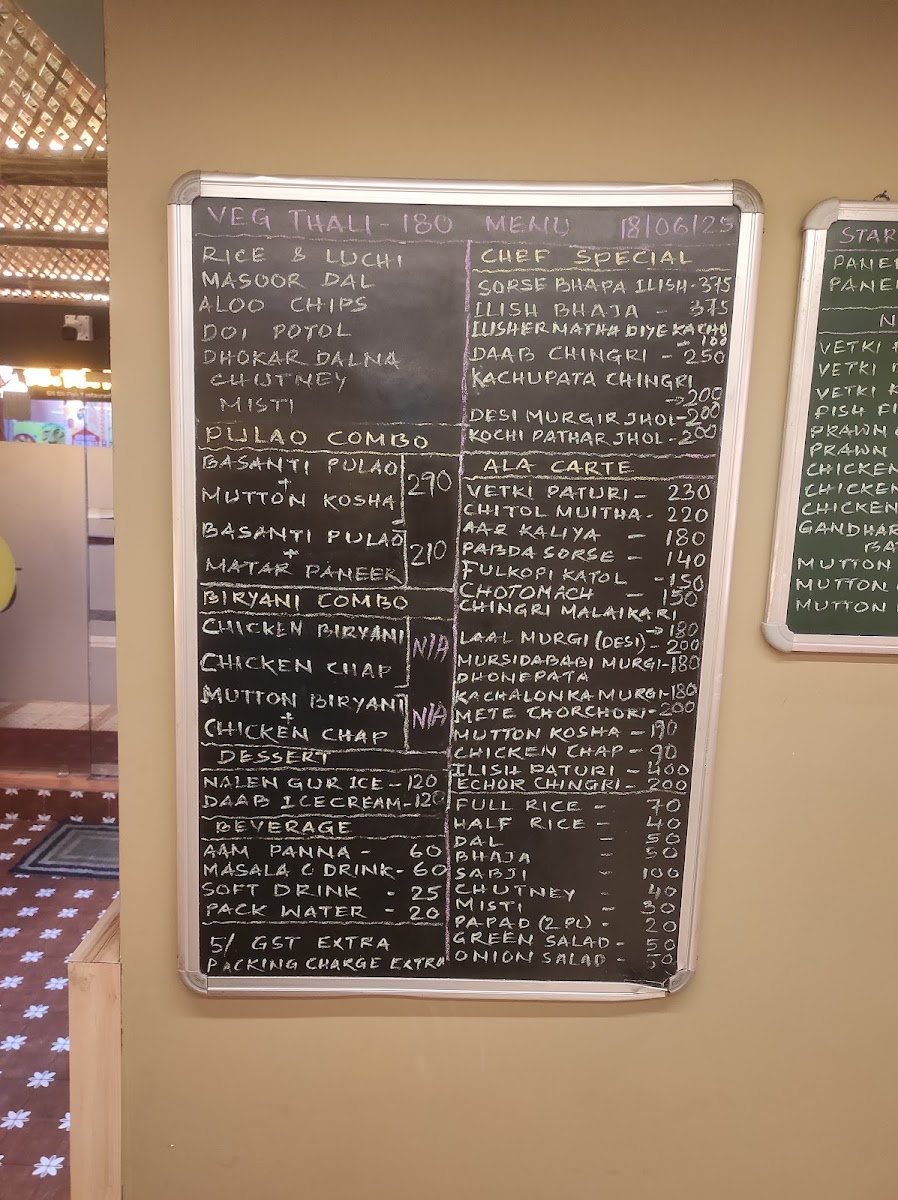 VEG THALI - 180 MENU 18/06/25
RICE & LUCHI
MASOOR DAL
ALOO CHIPS
DOI POTOL
DHOKAR DALNA
CHUTNEY
MISTI
PULAO COMBO
BASANTI PULAO
+
MUTTON KOSHA
290
BASANTI PULAO
+
MATAR PANEER
210
BIRYANI COMBO
CHICKEN BIRYANI
CHICKEN CHAP
N/A
MUTTON BIRYANI
+
CHICKEN CHAP
N/A
DESSERT
NALEN GUR ICE - 120
DAAB ICECREAM - 120
BEVERAGE
AAM PANNA - 60
MASALA C DRINK - 60
SOFT DRINK - 25
PACK WATER - 20
5/ GST EXTRA
PACKING CHARGE EXTRA
CHEF SPECIAL
SORSE BHAPA ILISH - 375
ILISH BHAJA - 375
ILISHER MATHA DIYE KACHU
- 100
DAAB CHINGRI - 250
KACHUPATA CHINGRI
→ 200
DESI MURGIR JHOL - 200
KOCHI PATHAR JHOL - 200
ALA CARTE
VETKI PATURI - 230
CHITOL MUITHA - 220
AAR KALIYA - 180
PABDA SORSE - 140
FULKOPI KATOL - 150
CHOTOMACH - 150
CHINGRI MALAIKARI
→ 180
LAAL MURGI (DESI) - 200
MURSIDABABI MURGI - 180
DHONEPATA
KACHALONKA MURGI - 180
METE CHORCHORI - 200
MUTTON KOSHA - 190
CHICKEN CHAP - 90
ILISH PATURI - 400
ECHOR CHINGRI - 200
FULL RICE - 70
HALF RICE - 40
DAL - 50
BHAJA - 50
SABJI - 100
CHUTNEY - 40
MISTI - 30
PAPAD (2 PC) - 20
GREEN SALAD - 50
ONION SALAD - 50
STAR
PANEE
PANE
N
VETKI
VETKI
VETKI
FISH FI
PRAWN
PRAWN
CHICKEN
CHICKEN
CHICKEN
GANDHAR
BA
MUTTON
MUTTON
MUTTON